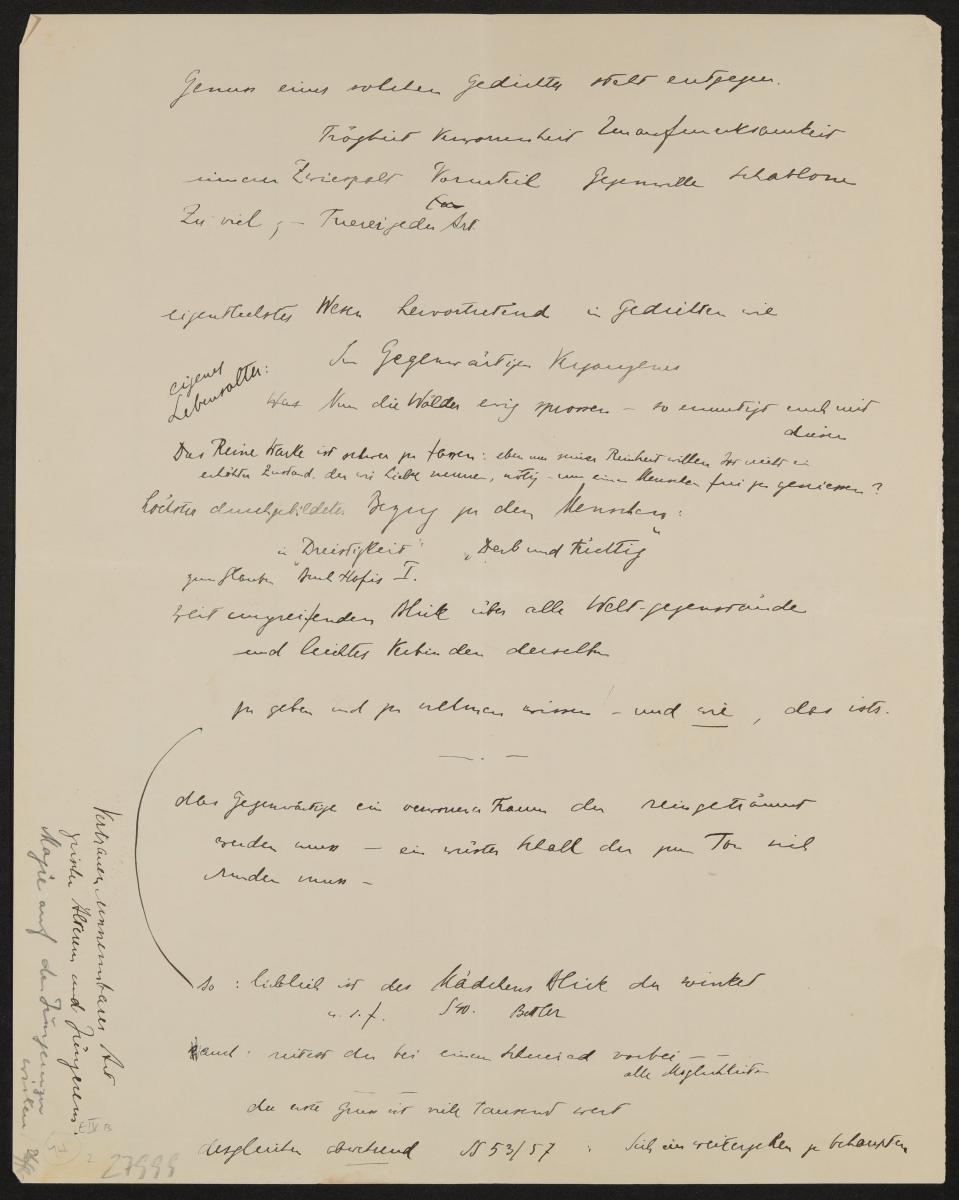 Genuss eines solchen Gedichtes steht entgegen.
Trägheit Verworrenheit Unaufmerksamkeit
innerer Zwiespalt Vorurteil Gegenwille Schablone
Zu viel ; – jeder Art
eigentlichstes Wesen hervortretend in Gedichten wie
Im Gegenwärtigen Vergangenes
eigenes
Lebensalter:
Was Nun die Wälder ewig sprossen – so ermutigt euch mit
diesen
Das Reine Starke ist schwer zu fassen: eben um seiner Reinheit willen. Ist nicht ein
erhöhter Zustand, den wir Liebe nennen, nötig – um einen Menschen frei zu geniessen?
höchster durchgebildeter Bezug zu den Menschen:
in Dreistigkeit" „Derb und Tüchtig"
zum Glauben Buch Hafis I.
weit umgreifenden Blick über alle Welt-gegenstände
und leichtes Verbinden derselben
zu geben und zu nehmen wissen – und wie, das ists.
— . —
das Gegenwärtige ein verworrener Traum der reingeträumt
werden muss – ein wüster Schall der zum Ton sich
runden muss –
so : lieblich ist des Mädchens Blick der winket
u. s. f. S 40. Bettler
auch: reitest du bei einem Schmied vorbei – –
alle Möglichkeiten
der erste Gruss ist viele tausend wert
desgleichen abweisend SS 53/57 : Sich im weitergehen zu behaupten
Vertrauen unnennbares Art
zwischen Älterem und Jüngerem:
Magie auf den Jüngeren
wirken
E IV B
2
27998